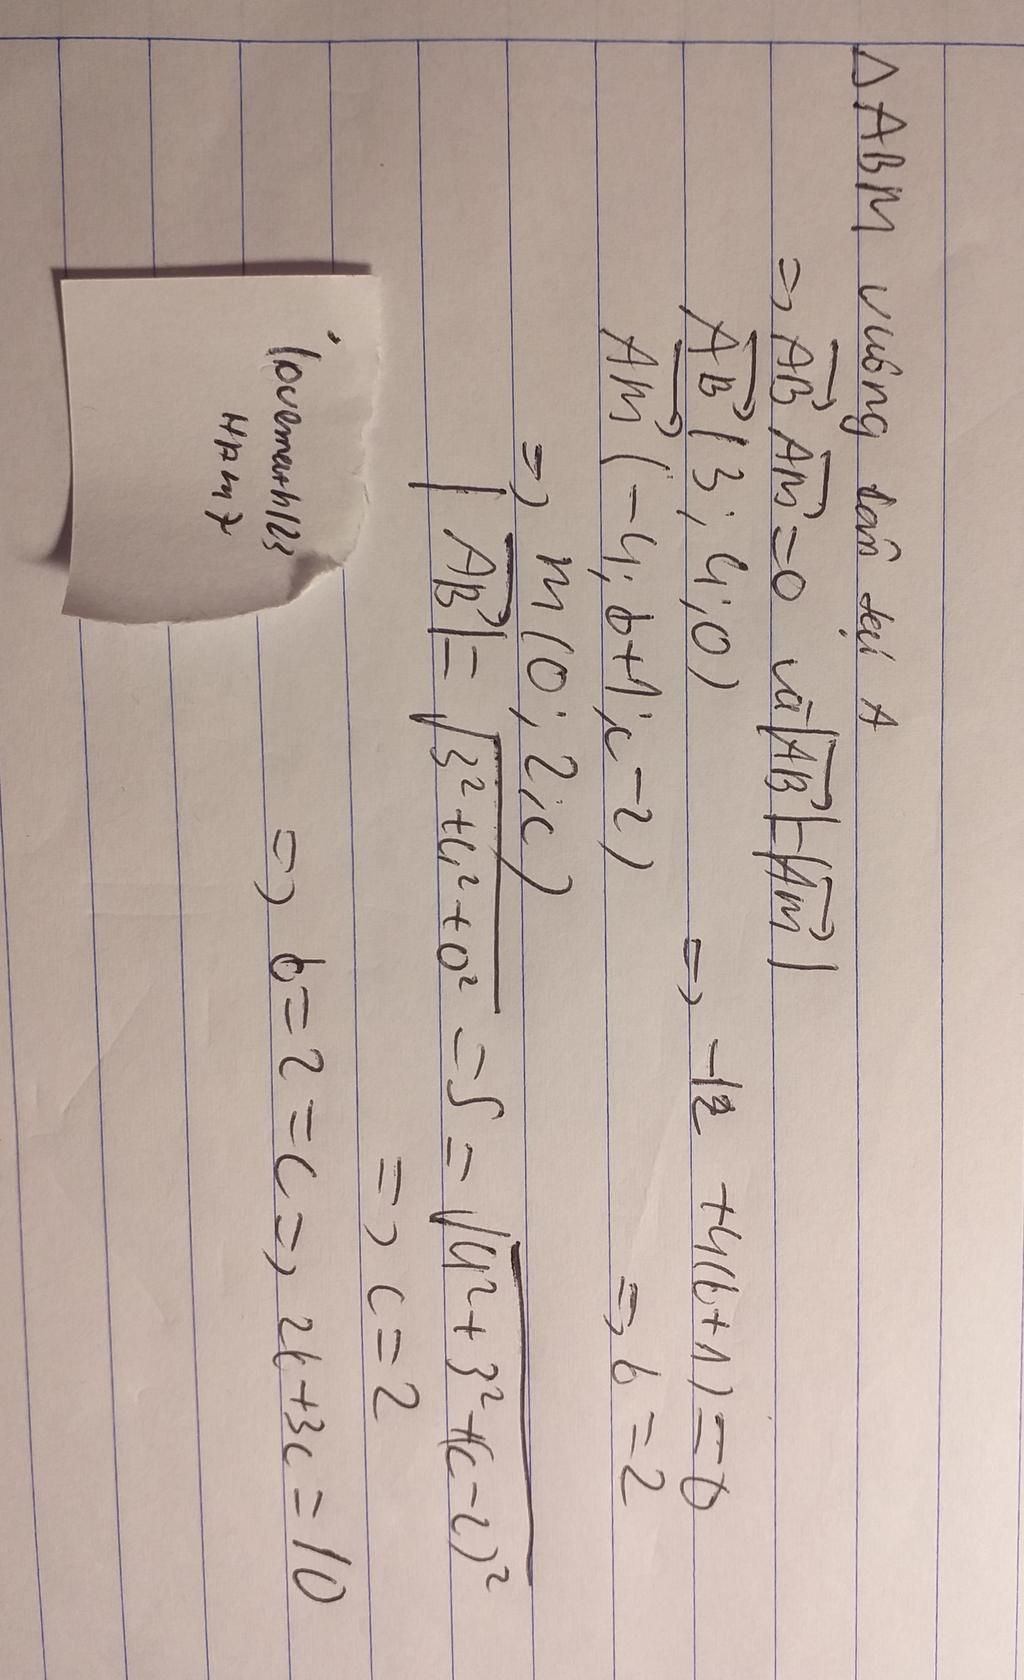 ΔABM vuông cân tại A
=> AB⃗ AM⃗ = 0 và |AB⃗| = |AM⃗|
AB⃗ (3; 4; 0) => -12 + 4(b+1) = 0
AM⃗ (-4; b+1; c-2) => b = 2
=> M(0; 2; c)
|AB⃗| = √(3² + 4² + 0²) = 5 = √(4² + 3² + (c-2)²)
=> c = 2
=> b = 2 = c => 2b + 3c = 10
lovemath123